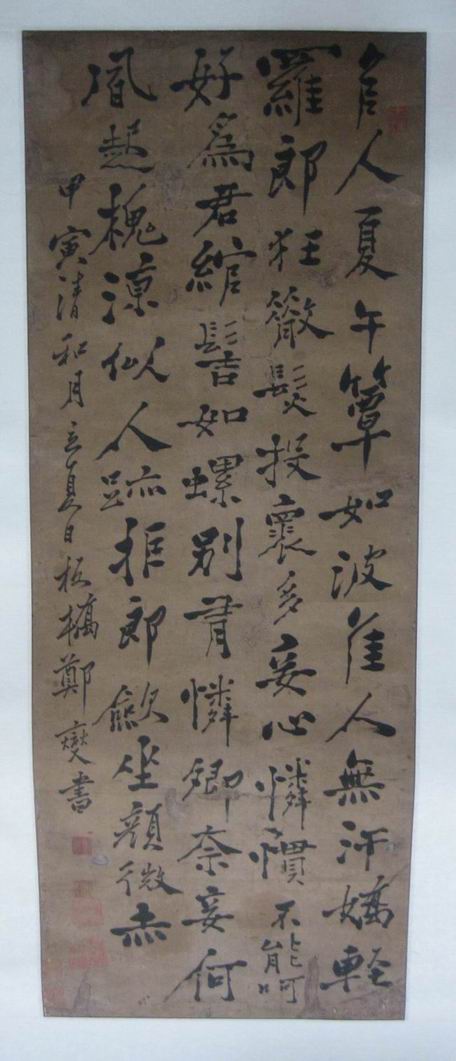 官人夏午簟如波佳人無汗嬌輕
羅郎狂散髮投褱多妾心憐慣不能呵
好為君綰髻如螺別肯憐卿奈妾何
風起槐凉似人跡拒郎歛坐顏微赤
甲寅清和月立夏日板橋鄭燮書